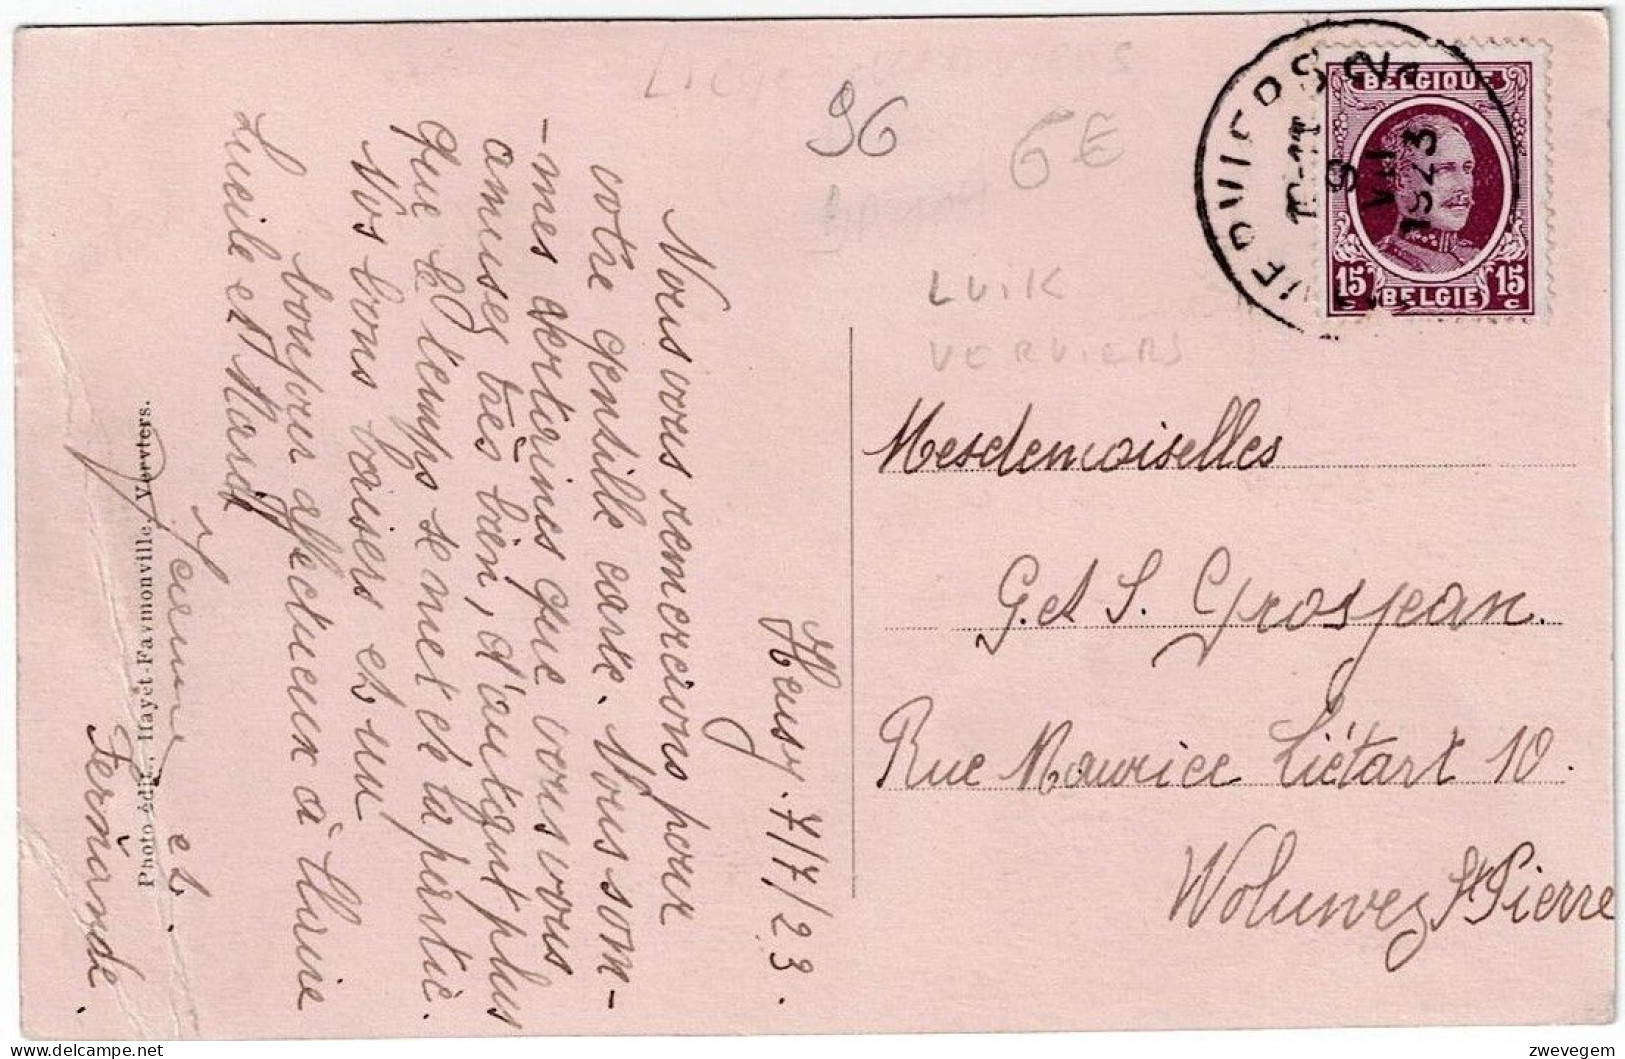 Heusy. 7/7/23.
Nous vous remercions pour
votre gentille carte. Nous som-
-mes certaines que vous vous
amusez très bien, d'autant plus
que le temps se met de la partie.
Nos bons baisers et un
bonjour affectueux à Marie
Lucile et Mardi
Jeanne et
Fernande.
Photo-édit., Hayet-Favmonville, Verviers.
96
6€
LUIK
VERVIERS
VERVIERS 2
10-11
9
VII
1923
BELGIQUE
15 c
BELGIE
15 c
Mesdemoiselles
G. et S. Grosjean.
Rue Maurice Liétart 10.
Woluwez St Pierre
zwevegem